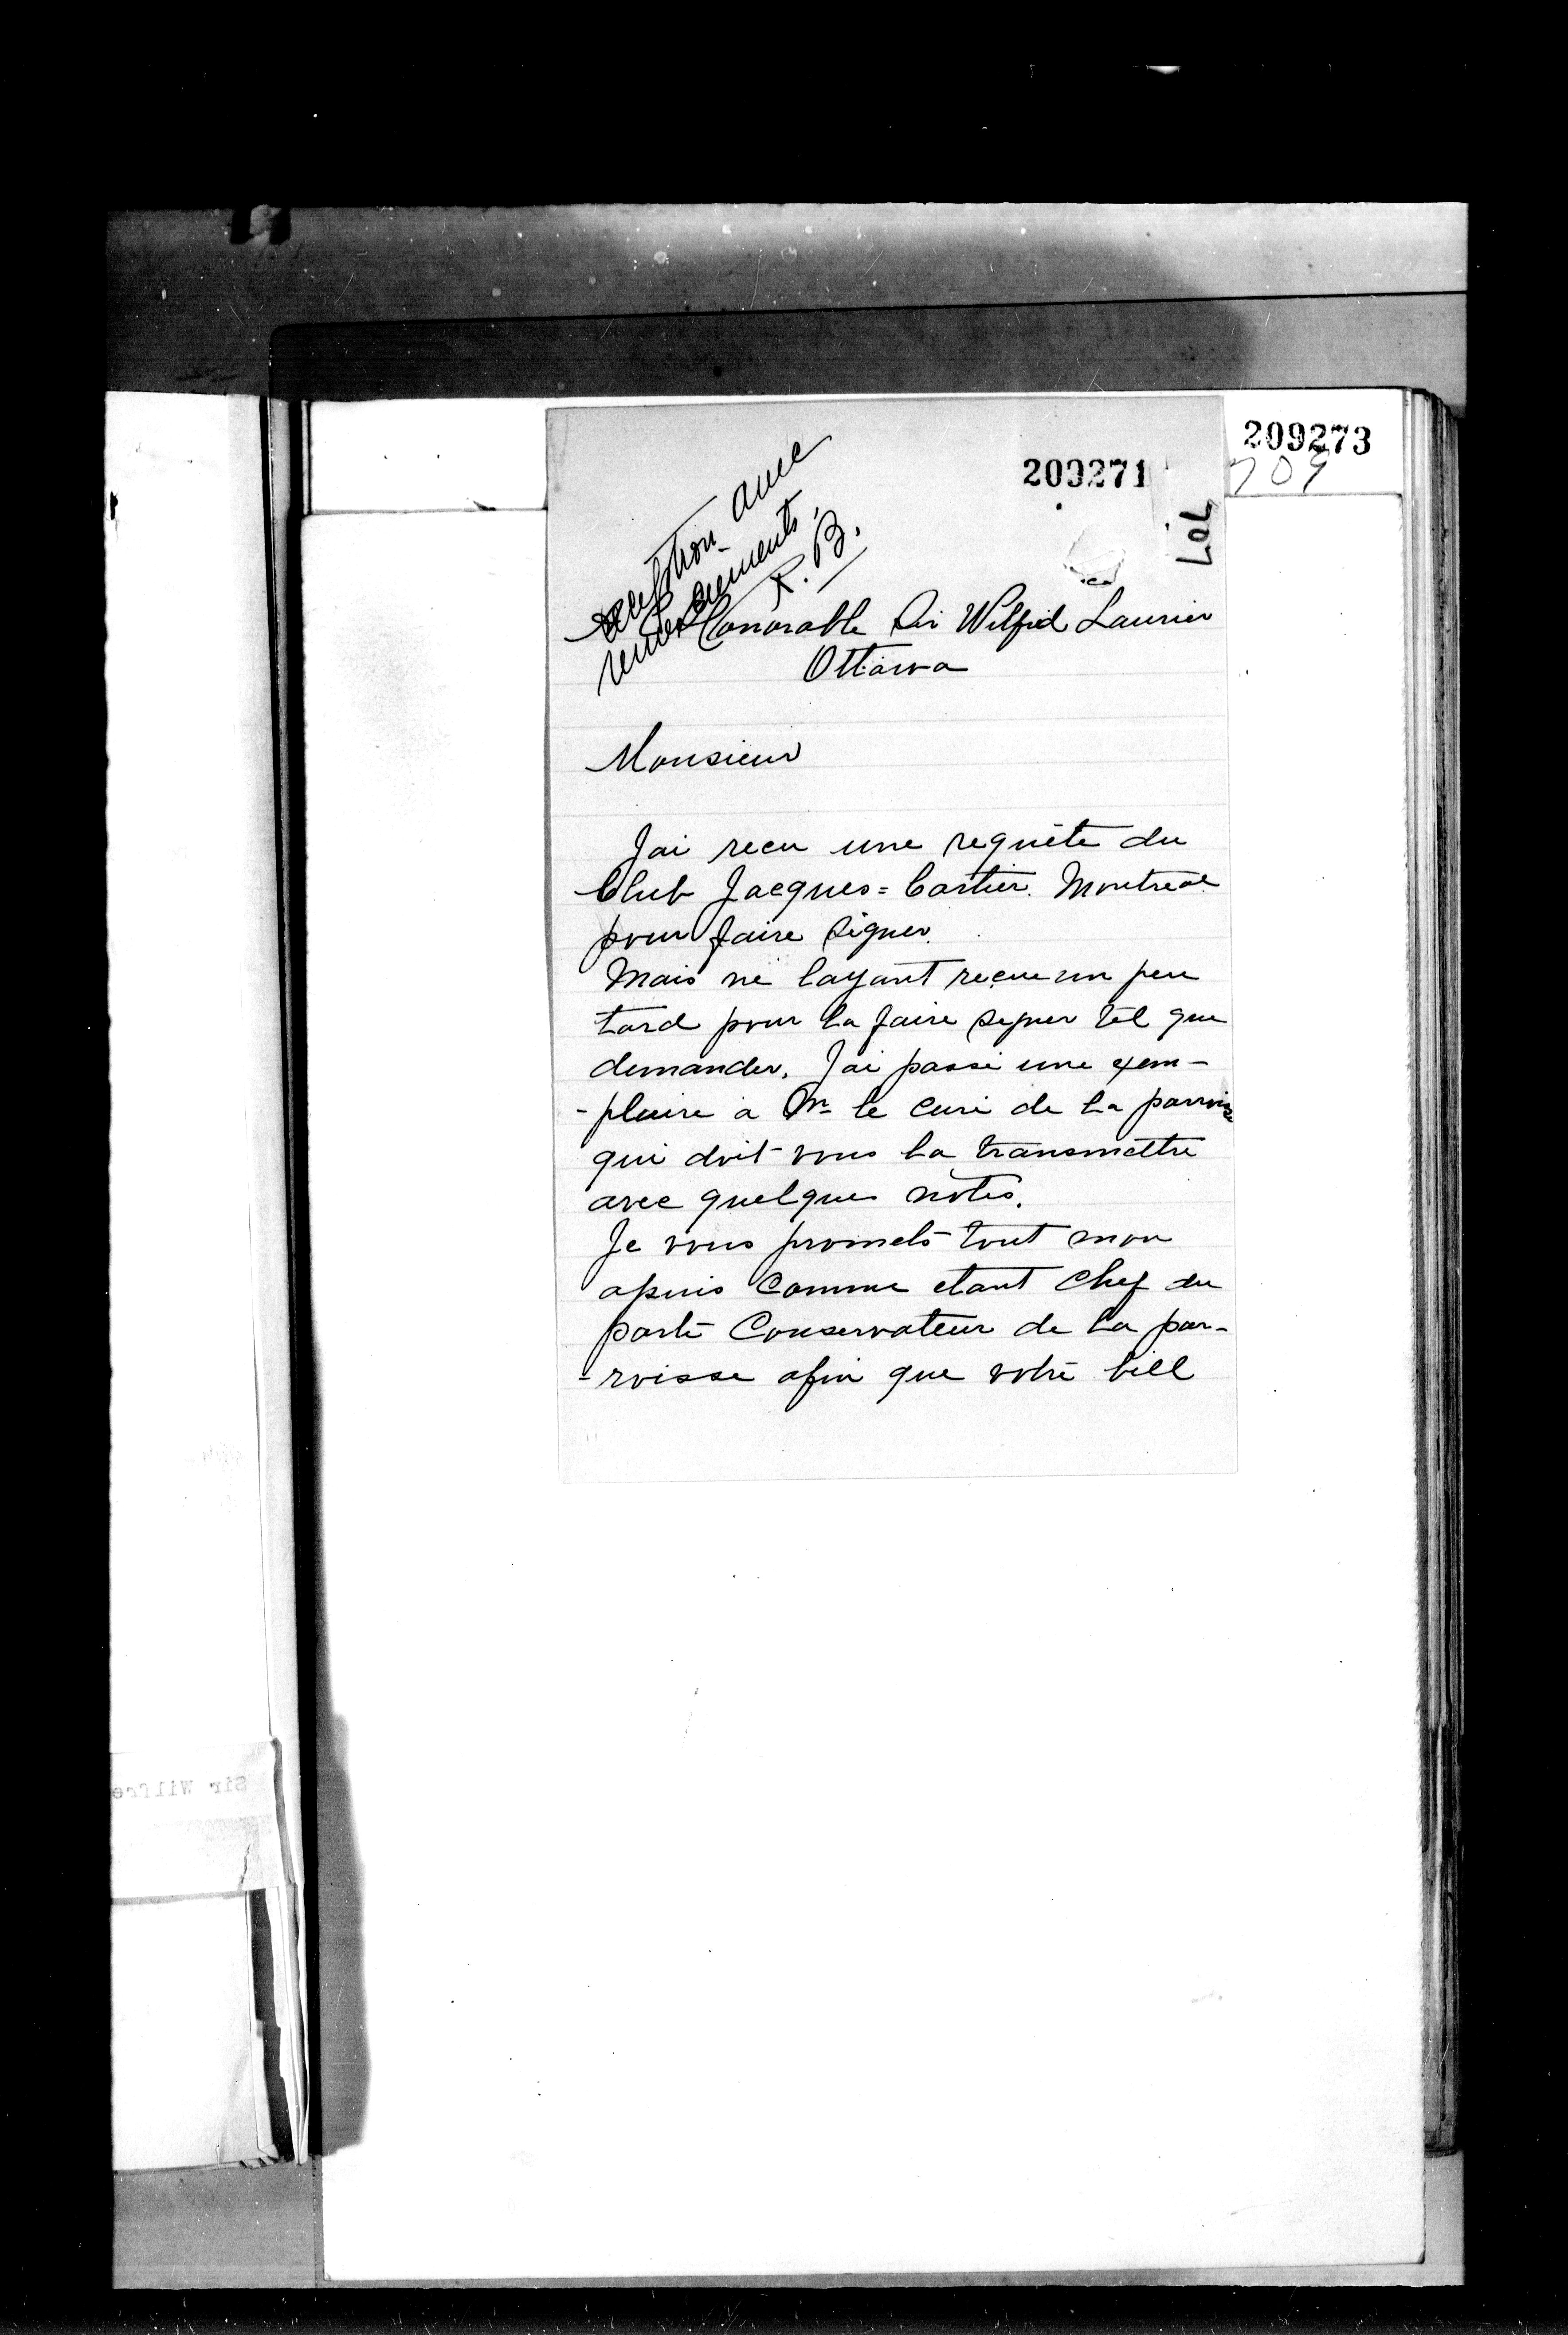 209273
709
209271
707
réception avec
remerciements,
R. B.
Honorable Sir Wilfrid Laurier
Ottawa
Monsieur
Jai recu une requête du
Club Jacques=Cartier. Montreal
pour faire signer.
Mais ne layant reçue un peu
tard pour la faire signer tel que
demander, Jai passé une exem-
-plaire a Mr le curé de la parroisse
qui doit vous la transmettre
avec quelques notes.
Je vous promets tout mon
apuis comme etant chef du
parti Conservateur de la par-
-roisse afin que votre bill
Sir Wilfre